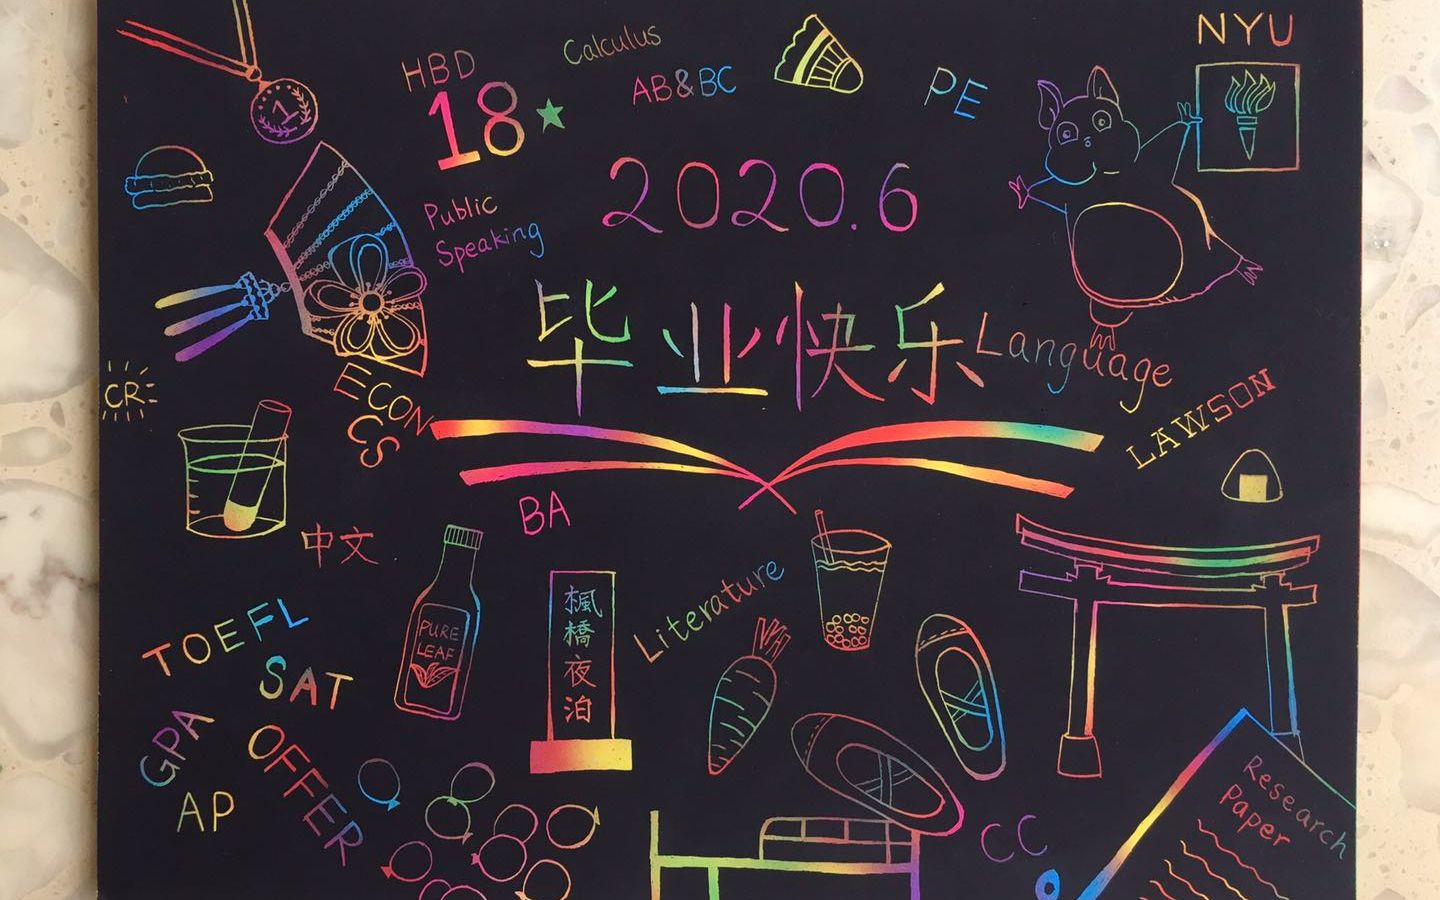 NYU
HBD
18
Calculus
AB&BC
PE
1
2020.6
Public
Speaking
毕业快乐
Language
CR
ECON
CS
LAWSON
BA
中文
PURE
LEAF
楓橋夜泊
Literature
TOEFL
SAT
GPA
OFFER
AP
CC
Research
Paper